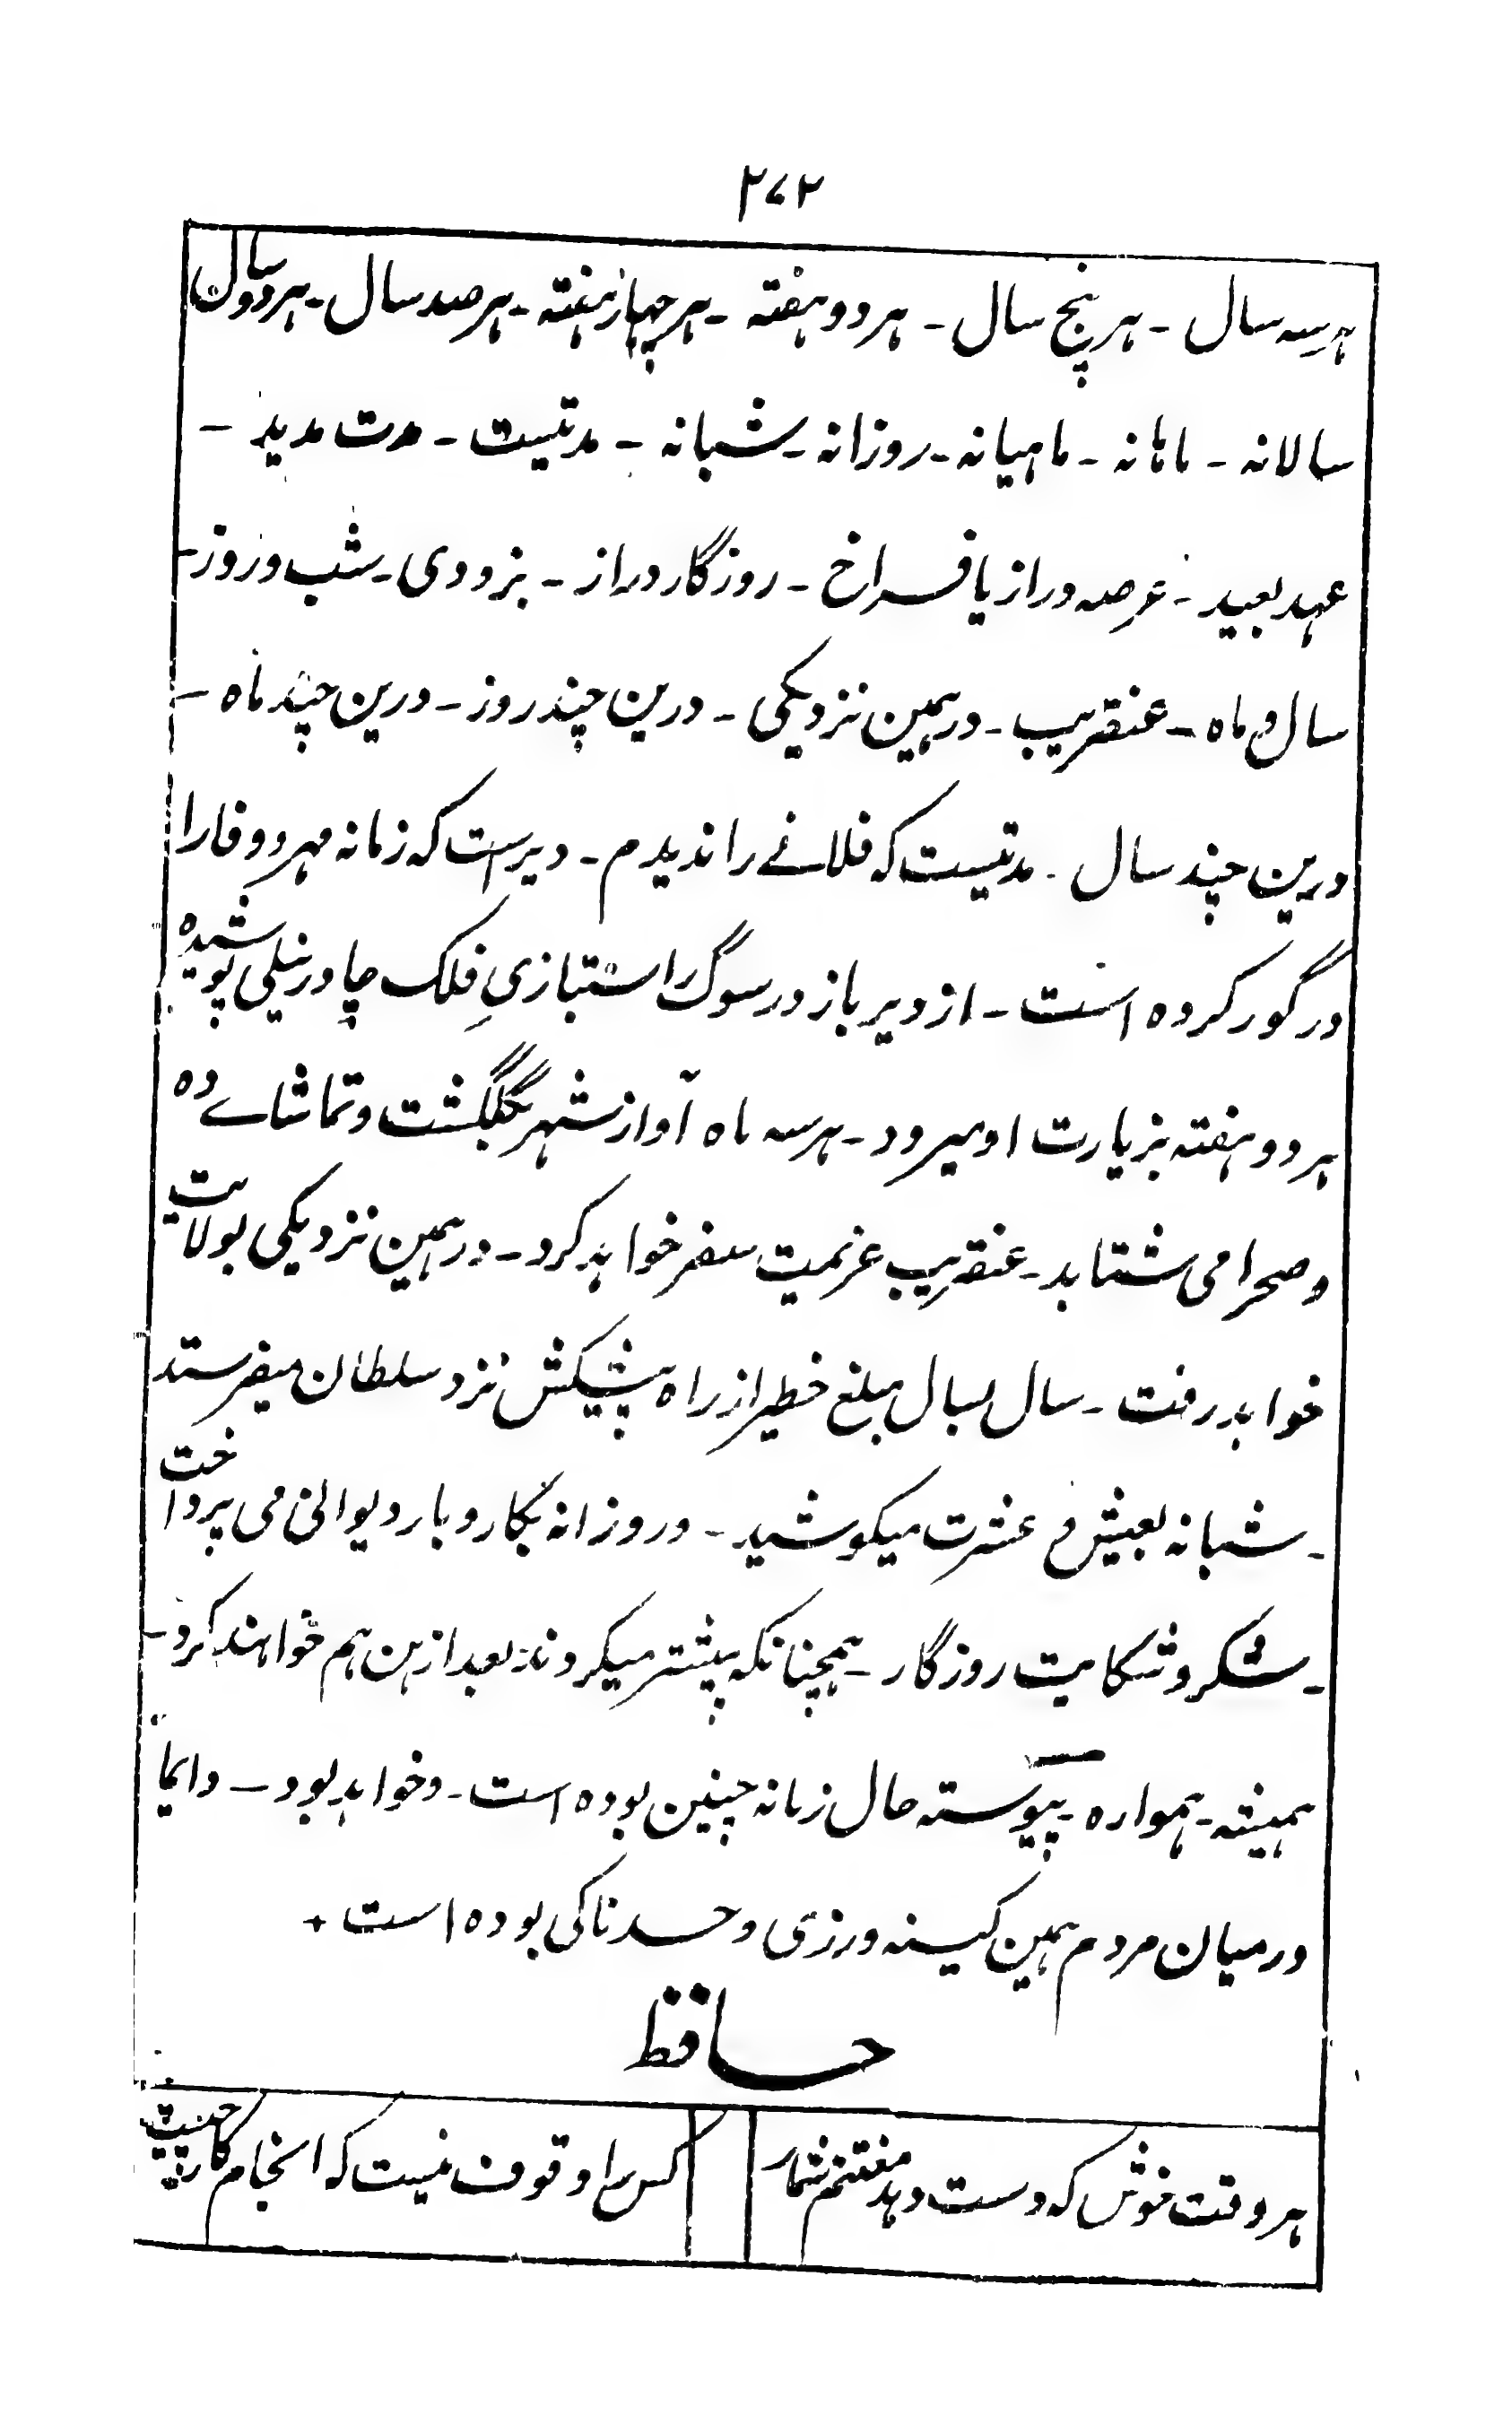 ۲۷۲
هرسه سال - هر پنج سال - هر دو هفته - هر چهار هفته - هر صد سال - هر دو سال
سالانه - ماهانه - ماهیانه - روزانه - شبانه - مدتیست - مدت مدید -
عهد بعید - عرصه دراز یا فراخ - روزگار دراز - بزودی - شب و روز -
سال و ماه - عنقریب - درهمین نزدیکی - درین چند روز - درین چند ماه -
درین چند سال - مدتیست که فلانے را ندیدم - دیرست که زمانه مهر و وفا را
در گور کرده است - از دیر باز در سوگ راستبازیِ فلک چادر نیلی پوشیده
هر دو هفته بزیارت او میرود - هرسه ماه آواز شهر بگلگشت و تماشاے ده
و صحرا می شتابد - عنقریب عزیمت سفر خواهد کرد - در همین نزدیکی بولایت
خواهد رفت - سال بسال مبلغ خطیر از راه پیشکش نزد سلطان میفرستد
- شبانه بعیش و عشرت میکوشید - و روزانه بکار و بار دیوانی می پرداخت
- شکر و شکایت روزگار - همچنانکه پیشتر میکردند بعد ازین هم خواهند کرد -
همیشه - همواره - پیوسته حال زمانه چنین بوده است - و خواهد بود - دایما
درمیان مردم همین کینه ورزی و حسدناکی بوده است +
حافظ
هر وقت خوش که دست دهد مغتنم شمار
کس را وقوف نیست که انجام کار چیست